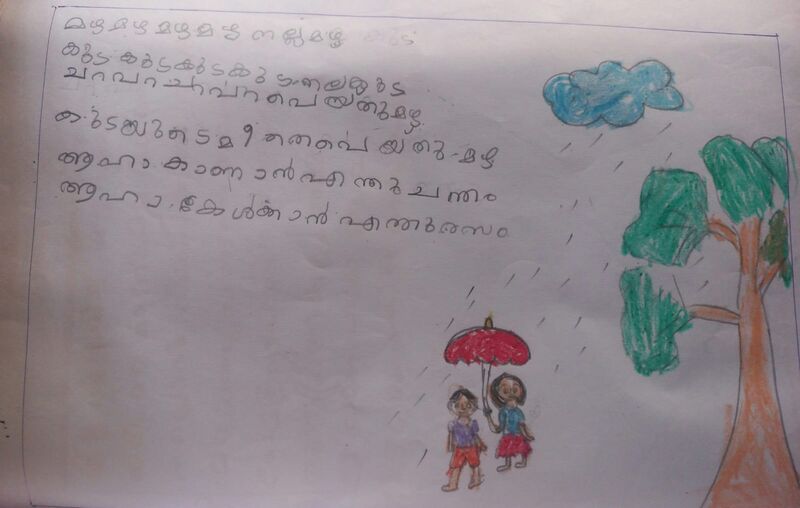 മഴ മഴ മഴ മഴ നല്ല മഴ കുട
കുട കുട കുട കുട നല്ല കുട
ചറ പറ ചറ പറ പെയ്തു മഴ
കുടയുടെ മീതെ പെയ്തു മഴ
ആഹാ കാണാൻ എന്തു ചന്തം
ആഹാ കേൾക്കാൻ എന്തു രസം